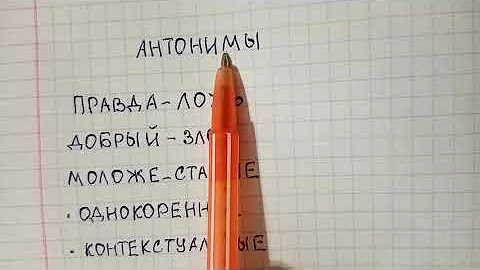 АНТОНИМЫ
ПРАВДА – ЛОЖЬ
ДОБРЫЙ – ЗЛО
МОЛОЖЕ – СТА ШЕ
• ОДНОКОРЕНН
• КОНТЕКСТУАЛЬНЫЕ